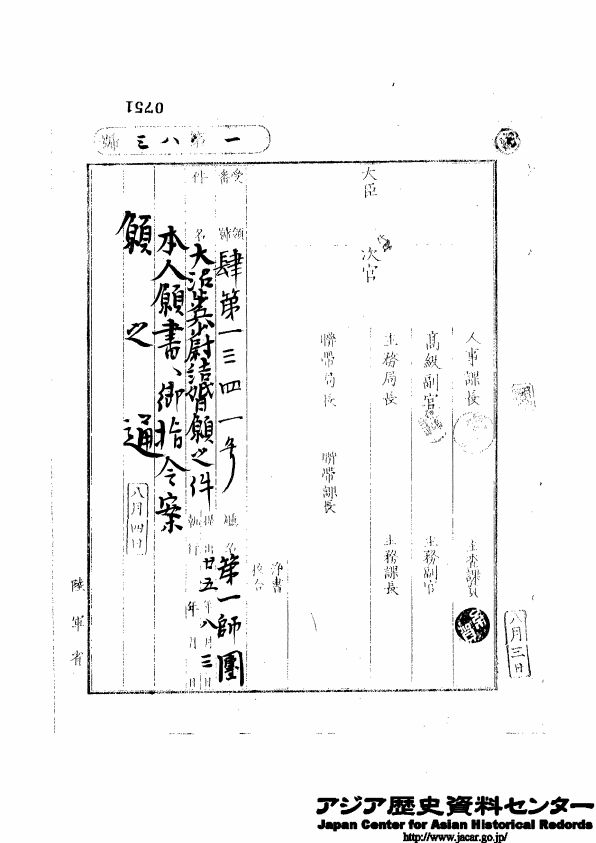 0751
第一八三號
大臣
次官
人事課長
高級副官
主務局長
聯帶局長
主査課員
主務副官
主務課長
聯帶課長
八月三日
浄書
校合
受領番號
肆第一三四一号
件名
大沼少尉結婚願之件
本人願書、御指令案
願之通
八月四日
第一師團
提出
廿五年八月三日
執行
年月日
陸軍省
アジア歴史資料センター
Japan Center for Asian Historical Records
http://www.jacar.go.jp/